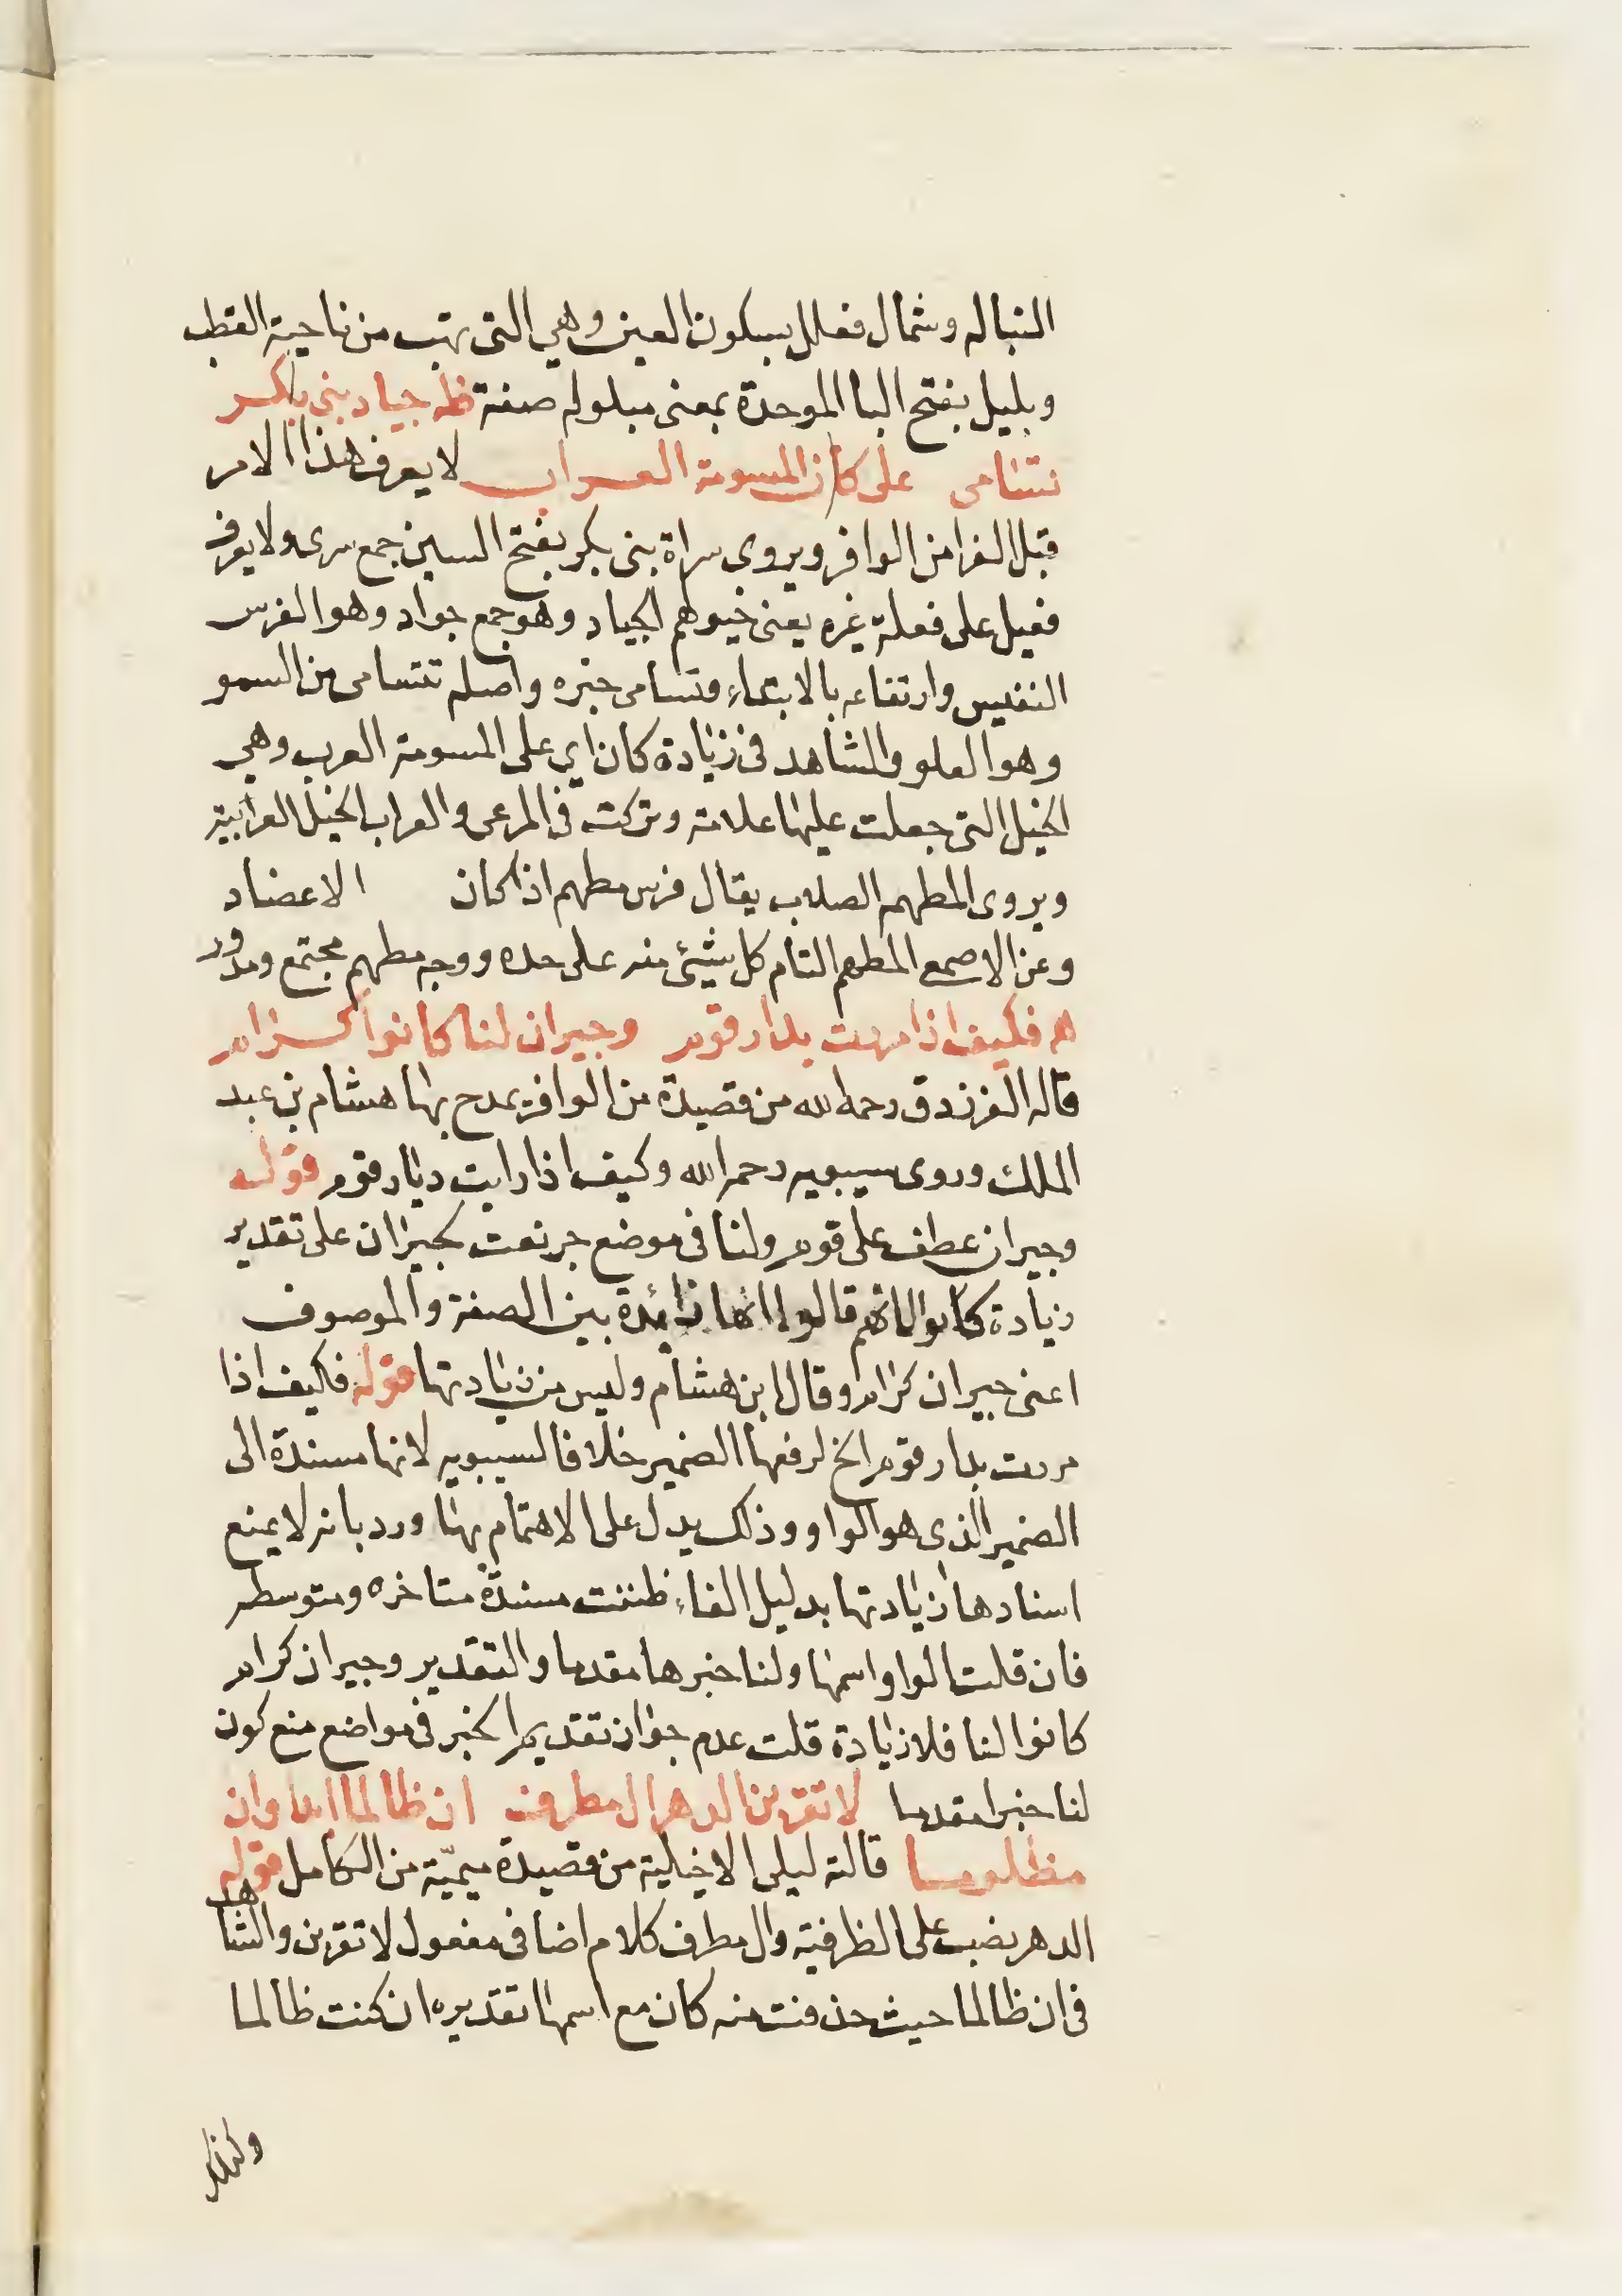 النباله وشمال فعلل بسكون العين وهي التى تهب من ناحية القطب
وبليل بفتح البا الموحدة بمعنى مبلوله صفة ظه جياد بنى بكر
تسامى على كان المسومة العراب لا يعرف هذا الا مر
قبل الفرا من الوافر ويروى سراة بنى بكر بفتح السين جمع سرى ولا يعرف
فعيل على فعلة غيره يعنى خيوهم الجياد وهو جمع جواد وهو الفرس
النفيس وارتفاعه بالابتداء وتسامى خبره واصله تتسامى من السمو
وهو العلو والشاهد فى زيادة كان اي على المسومة العرب وهي
الخيل التى جعلت عليها علامة وتركت فى المرعى والعراب الخيل العرابية
ويروى المطهمه الصلاب يقال فرس مطهم اذا كان الاعضاد
وعن الاصمع المطهم التام كل شيئ منه على حده ووجه مطهم مجتمع ومدور
هـ فكيف اذا مررت بدار قوم وجيران لنا كانوا كرام
قاله الفرزدق رحمه الله من قصيدة من الوافر يمدح بها هشام بن عبد
الملك وروى سيبويه رحمه الله وكيف اذا رايت ديار قوم قوله
وجيران عطف على قوم ولنا فى موضع جر نعت لجيران على تقدير
زيادة كانوا لانهم قالوا انها زائدة بين الصفة والموصوف
اعنى جيران كرام وقال ابن هشام وليس من زيادتها قوله فكيف اذا
مررت بدار قوم الخ لرفعها الضمير خلافا لسيبويه لانها مسندة الى
الضمير الذى هو الواو وذلك يدل على الاهتمام بها ورد بانه لا يمنع
اسنادها زيادتها بدليل الغاء ظننت مسندة متاخره ومتوسطه
فان قلت الواو اسمها ولنا خبرها مقدما والتقدير وجيران كرام
كانوا لنا فلا زيادة قلت عدم جواز تقديم الخبر فى مواضع منع كون
لنا خبرا مقدما لا تقربن الدهر ال مطرف ان ظالما ابدا وان
مظلوما قالته ليلى الاخيلية من قصيدة ميميّة من الكامل قوله
الدهر نصب على الظرفية وال مطرف كلام اضافى مفعول لا تقربن والشاهد
فى ان ظالما حيث حذفت منه كان مع اسمها تقديره ان كنت ظالما
وكذلك